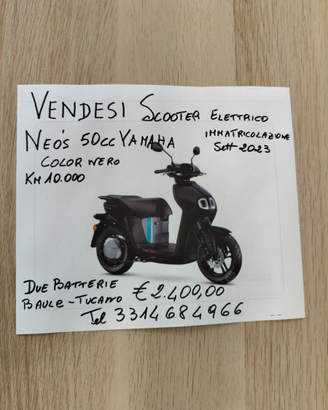 VENDESI SCOOTER ELETTRICO
NEO'S 50cc YAMAHA
IMMATRICOLAZIONE
SETT 2023
COLOR NERO
KM 10.000
DUE BATTERIE
BAULE - TUCANO
€ 2.400,00
Tel 3314684966